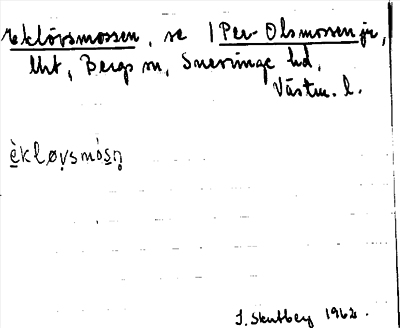 Eklövsmossen, se 1 Per-Olsmossen jr,
lht, Bergs sn, Snevringe hd,
Västm. l.
èkløvsmòsn̥
J. Skutbey 1962.